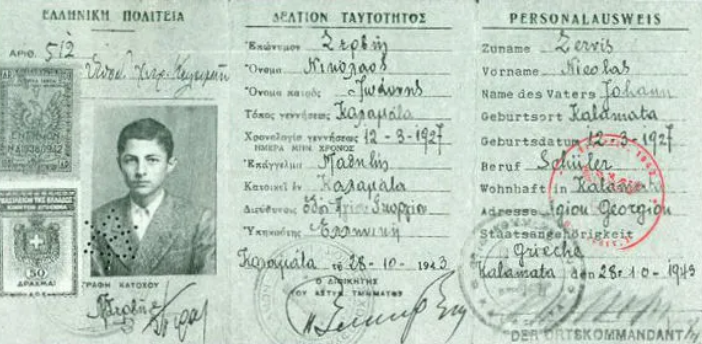 ΕΛΛΗΝΙΚΗ ΠΟΛΙΤΕΙΑ
Αριθ. 512
50
ΔΡΑΧΜΑΙ
ΓΡΑΦΗ ΚΑΤΟΧΟΥ
ΔΕΛΤΙΟΝ ΤΑΥΤΟΤΗΤΟΣ
Ἐπώνυμον Ζερβῆς
Ὄνομα Νικόλαος
Ὄνομα πατρός Ἰωάννης
Τόπος γεννήσεως Καλαμάτα
Χρονολογία γεννήσεως 12-3-1927
ΗΜΕΡΑ ΜΗΝ ΧΡΟΝΟΣ
Ἐπάγγελμα Μαθητής
Κατοικεῖ ἐν Καλαμάτα
Διεύθυνσις Ὁδὸς Ἁγίου Γεωργίου
Ὑπηκοότης Ἑλληνική
Καλαμάτα τῇ 28-10-1943
Ο ΔΙΟΙΚΗΤΗΣ
ΤΟΥ ΑΣΤΥΝ. ΤΜΗΜΑΤΟΣ
PERSONALAUSWEIS
Zuname Zervis
Vorname Nicolas
Name des Vaters Johann
Geburtsort Kalamata
Geburtsdatum 12-3-1927
Beruf Schüler
Wohnhaft in Kalamata
Adresse Agiou Georgiou
Staatsangehörigkeit
Grieche
Kalamata den 28-10-1943
DER ORTSKOMMANDANT